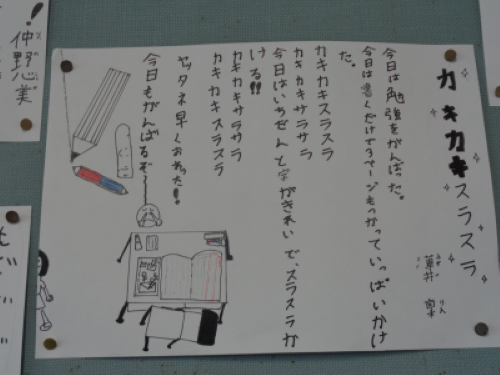 カキカキスラスラ
井
りん
今日は勉強をがんばった。
今日は書くだけで9ページもつかっていっぱいかけ
た。
カキカキスラスラ
カキカキサラサラ
今日はいちだんと字がきれいで、スラスラか
ける!!
カキカキサラサラ
カキカキスラスラ
ヤッタネ早くおわった!!
今日もがんばるぞ〜
！
仲野心美